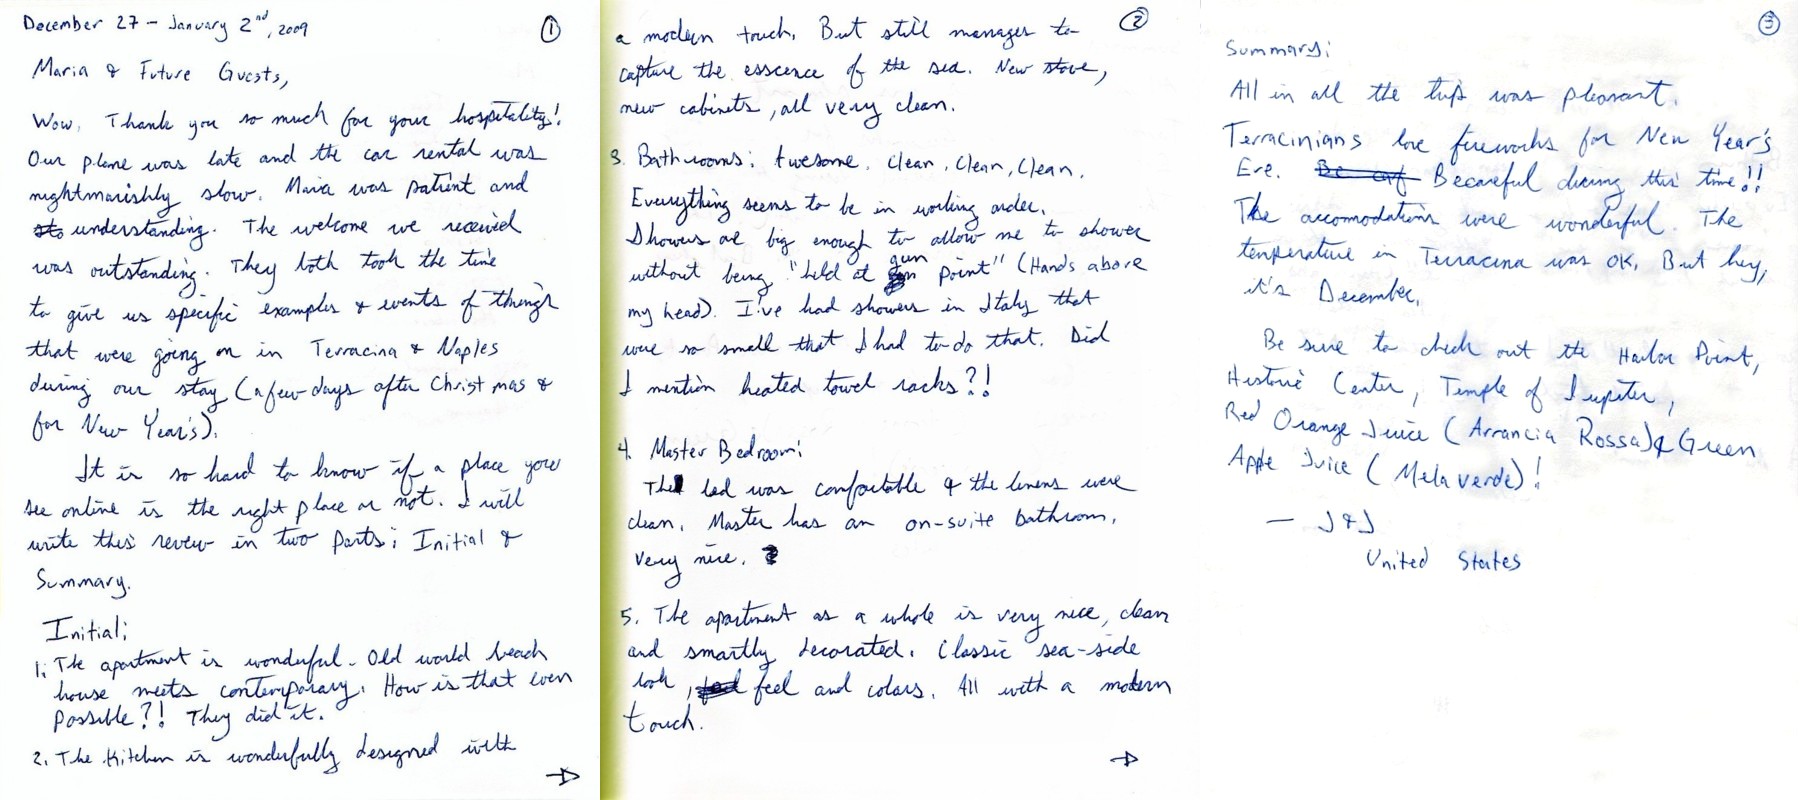 December 27 - January 2nd, 2009
1
Maria & Future Guests,
Wow, Thank you so much for your hospitality!
Our plane was late and the car rental was
nightmarishly slow. Maria was patient and
understanding. The welcome we received
was outstanding. They both took the time
to give us specific examples & events of things
that were going on in Terracina & Naples
during our stay (a few days after Christmas &
for New Year's).
It is so hard to know if a place you
see online is the right place or not. I will
write this review in two parts: Initial &
Summary.
Initial:
1. The apartment is wonderful. Old world beach
house meets contemporary. How is that even
possible?! They did it.
2. The Kitchen is wonderfully designed with
2
a modern touch. But still manages to
capture the esscence of the sea. New stove,
new cabinets, all very clean.
3. Bathrooms: Awesome. Clean, Clean, Clean.
Everything seems to be in working order.
Showers are big enough to allow me to shower
without being "held at gun point" (Hands above
my head). I've had showers in Italy that
were so small that I had to do that. Did
I mention heated towel racks?!
4. Master Bedroom:
The bed was comfortable & the linens were
clean. Master has an on-suite bathroom.
Very nice.
5. The apartment as a whole is very nice, clean
and smartly decorated. Classic sea-side
look, feel and colors. All with a modern
touch.
3
Summary:
All in all the trip was pleasant.
Terracinians love fireworks for New Year's
Eve. Becareful during this time!!
The accomodations were wonderful. The
temperature in Terracina was OK. But hey,
it's December.
Be sure to check out the Harbor Point,
Historic Center, Temple of Jupiter,
Red Orange Juice (Arrancia Rossa) & Green
Apple Juice (Mela verde)!
— J & J
United States